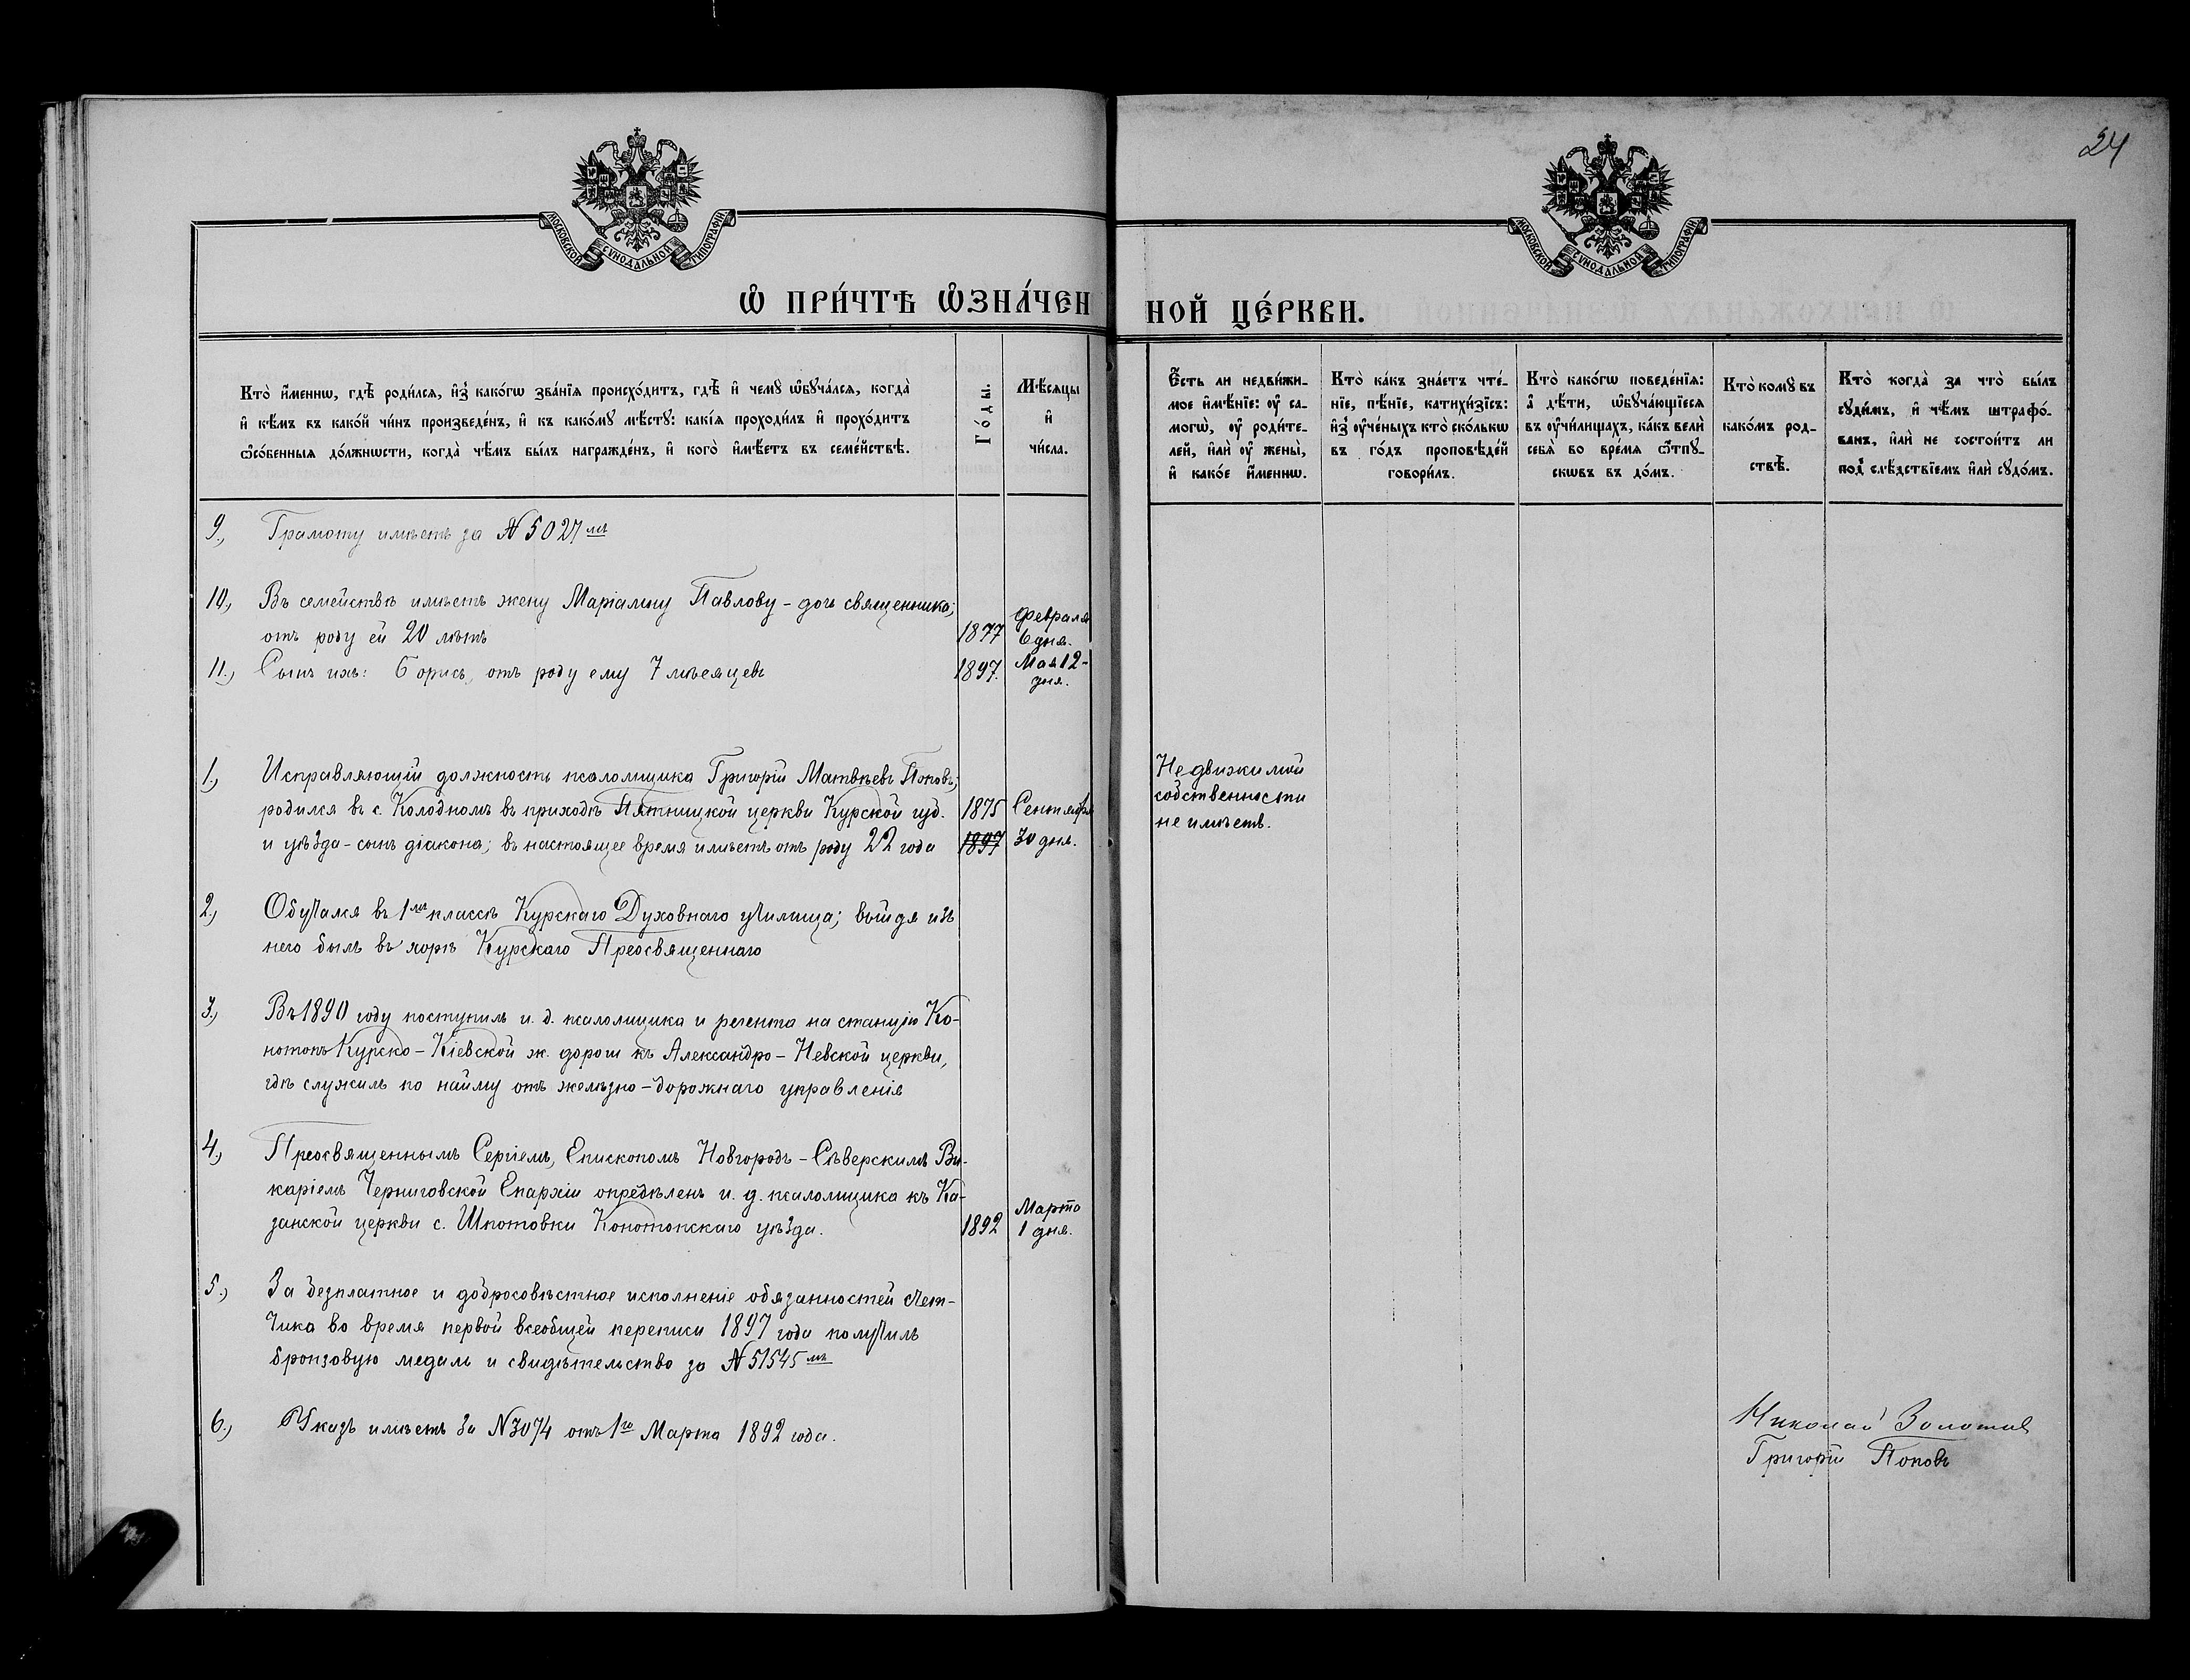 24
МОСКОВСКОЙ СѴНОДАЛЬНОЙ ТИПОГРАФІИ
МОСКОВСКОЙ СѴНОДАЛЬНОЙ ТИПОГРАФІИ
Ѡ ПРИ́ЧТѢ ѠЗНА́ЧЕННОЙ ЦЕ́РКВИ.
Кто̀ и҆́меннѡ, гдѣ̀ роди́лся, и҆з̾ како́гѡ зва́нїя происхо́дитъ, гдѣ̀ и҆ чемꙋ̀ ѡ҆бꙋча́лся, когда̀
и҆ кѣ́мъ въ како́й чи́нъ произведе́нъ, и҆ къ како́мꙋ мѣ́стꙋ: какі́я проходи́лъ и҆ прохо́дитъ
ѻ҆со́бенныя до́лжнѡсти, когда̀ чѣ́мъ бы́лъ награжде́нъ, и҆ кого̀ и҆мѣ́етъ въ семе́йствѣ.
Го́ды.
Мѣ́сяцы
и҆
чи́сла.
Е҆́сть ли недви́жи-
мое и҆мѣ́нїе: ᲂу҆ са-
могѡ̀, ᲂу҆ роди́те-
лей, и҆лѝ ᲂу҆ жены̀,
и҆ како́е и҆́меннѡ.
Кто̀ ка́къ зна́етъ чте́-
нїе, пѣ́нїе, катихи́зїсъ:
и҆з̾ ᲂу҆че́ныхъ кто̀ ско́лькѡ
въ го́дъ проповѣ́дей
говори́лъ.
Кто̀ како́гѡ поведе́нїя:
а҆ дѣ́ти, ѡ҆бꙋча́ющїеся
въ ᲂу҆чи́лищахъ, ка́къ велѝ
себѐ во вре́мя ѿпꙋ-
скѡвъ въ до́мъ.
Кто̀ комꙋ̀ въ
како́мъ род-
ствѣ̀.
Кто̀ когда̀ за что̀ бы́лъ
сꙋди́мъ, и҆ чѣ́мъ штрафо́-
ванъ, и҆лѝ не состои́тъ ли
под̾ слѣ́дствїемъ и҆лѝ сꙋдо́мъ.
9., Грамоту имѣетъ за № 5027мъ
10., Въ семействѣ имѣетъ жену Маріамну Павлову - дочь священника;
отъ роду ей 20 лѣтъ 1877 Февраля 6 дня.
11., Сынъ ихъ: Борисъ, отъ роду ему 7 мѣсяцевъ 1897. Мая 12-
дня.
1., Исправляющій должность псаломщика Григорій Матвѣевъ Поповъ;
родился въ с. Колодномъ въ приходѣ Пятницкой церкви Курской губ. 1875 Сентября
и уѣзда - сынъ діакона; въ настоящее время имѣетъ отъ роду 22 года 1897 30 дня.
Недвижимой
собственности
не имѣетъ.
2., Обучался въ 1мъ классѣ Курскаго Духовнаго училища; выйдя изъ
него былъ въ хорѣ Курскаго Преосвященнаго
3., Въ 1890 году поступилъ и. д. псаломщика и регента на станцію Ко-
нотопъ Курско-Кіевской ж. дороги къ Александро-Невской церкви,
гдѣ служилъ по найму отъ желѣзно-дорожнаго управленія
4., Преосвященнымъ Сергіемъ, Епископомъ Новгородъ-Сѣверскимъ Ви-
каріемъ Черниговской Епархіи опредѣленъ и. д. псаломщика къ Ка-
занской церкви с. Шпотовки Конотопскаго уѣзда. 1892 Марта 1 дня.
5., За безплатное и добросовѣстное исполненіе обязанностей счет-
чика во время первой всеобщей переписи 1897 года получилъ
бронзовую медаль и свидѣтельство за № 51545мъ
6., Указъ имѣетъ за № 3074 отъ 1го Марта 1892 года.
Николай
Григорій Поповъ